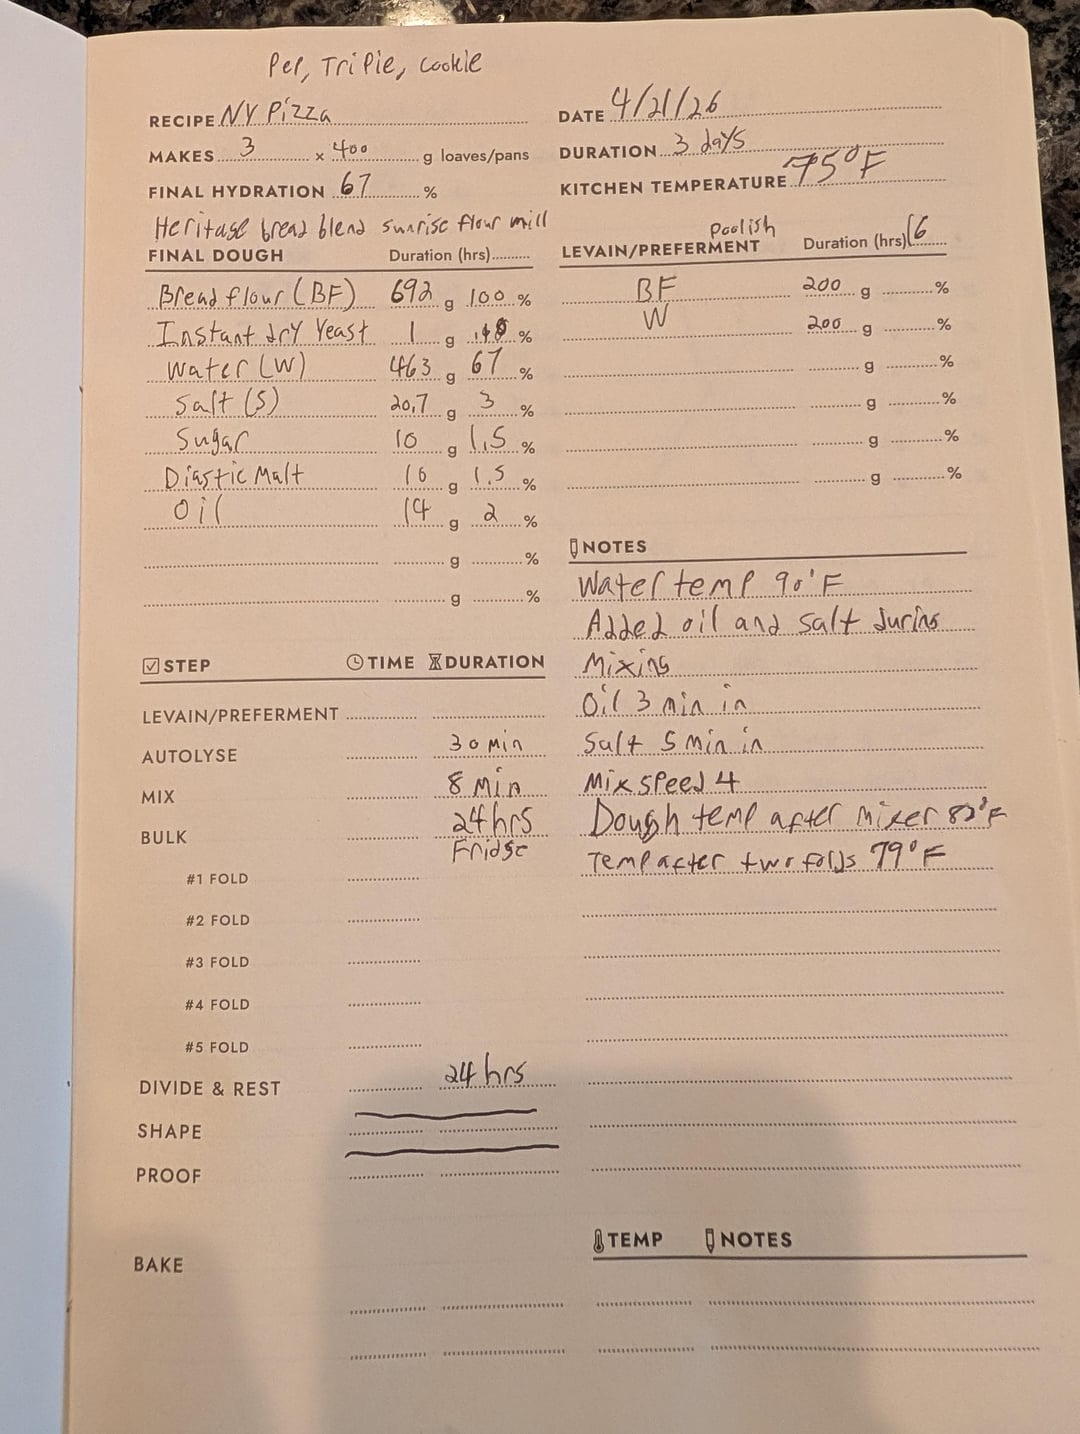 Pep, Tripie, Cookie
RECIPE NY Pizza
DATE 4/21/26
MAKES 3 x 400 g loaves/pans
DURATION 3 days
FINAL HYDRATION 67 %
KITCHEN TEMPERATURE 75°F
Heritage bread blend sunrise flour mill
FINAL DOUGH Duration (hrs)
Bread flour (BF) 692 g 100 %
Instant dry Yeast 1 g %
Water (W) 463 g 67 %
Salt (S) 20.7 g 3 %
Sugar 10 g 1.5 %
Diastic Malt 10 g 1.5 %
Oil 14 g 2 %
g %
g %
Poolish
LEVAIN/PREFERMENT Duration (hrs) 16
BF 200 g %
W 200 g %
g %
g %
g %
g %
NOTES
Water temp 90°F
Added oil and salt during
Mixing
Oil 3 min in
Salt 5 min in
Mix speed 4
Dough temp after mixer 82°F
Temp after two folds 79°F
STEP TIME DURATION
LEVAIN/PREFERMENT
AUTOLYSE 30 min
MIX 8 Min
BULK 24 hrs
Fridge
#1 FOLD
#2 FOLD
#3 FOLD
#4 FOLD
#5 FOLD
DIVIDE & REST 24 hrs
SHAPE
PROOF
TEMP NOTES
BAKE